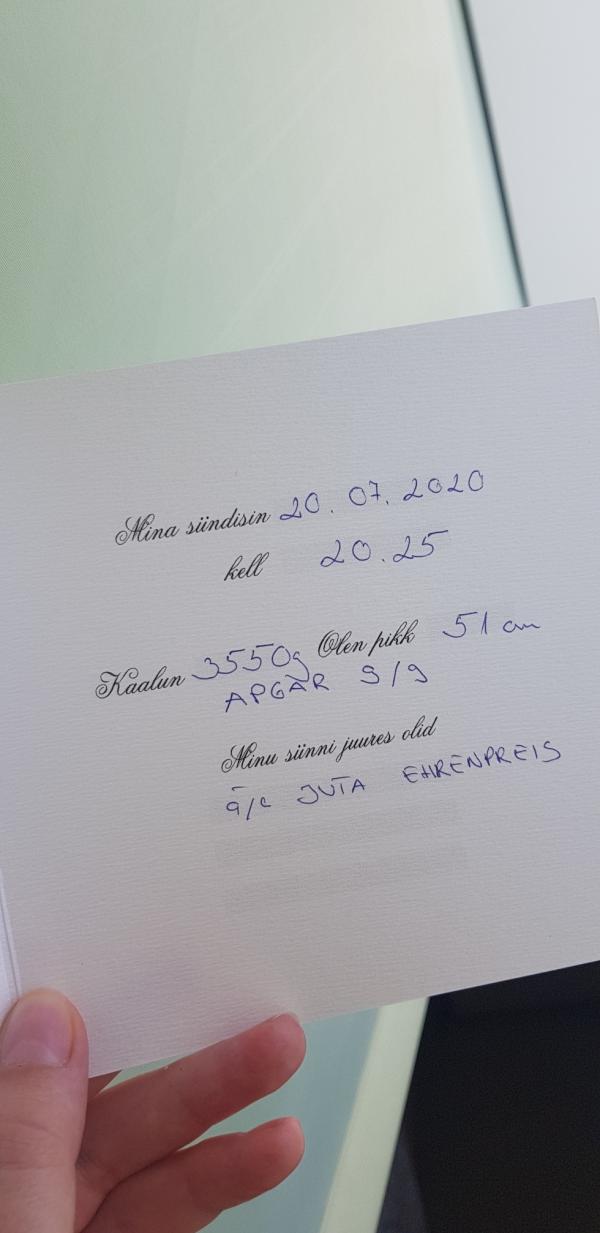 Mina sündisin 20. 07. 2020
kell 20.25
Kaalun 3550g Olen pikk 51 cm
APGAR 9/9
Minu sünni juures olid
JUTA EHRENPREIS